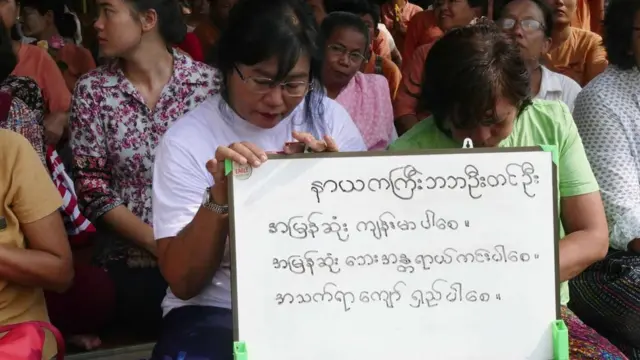 နာယကကြီးဘဘဦးတင်ဦး
အမြန်ဆုံး ကျန်းမာပါစေ။
အမြန်ဆုံး ဘေးအန္တရာယ်ကင်းပါစေ။
အသက်ရာကျော် ရှည်ပါစေ။